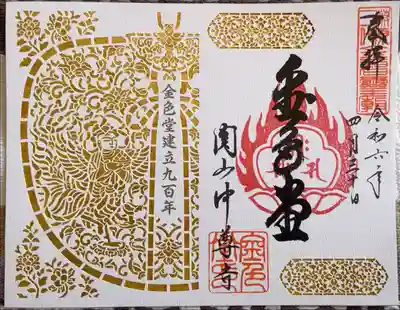 奉拝
令和六年
四月三十日
金色堂
関山中尊寺
金色堂建立九百年